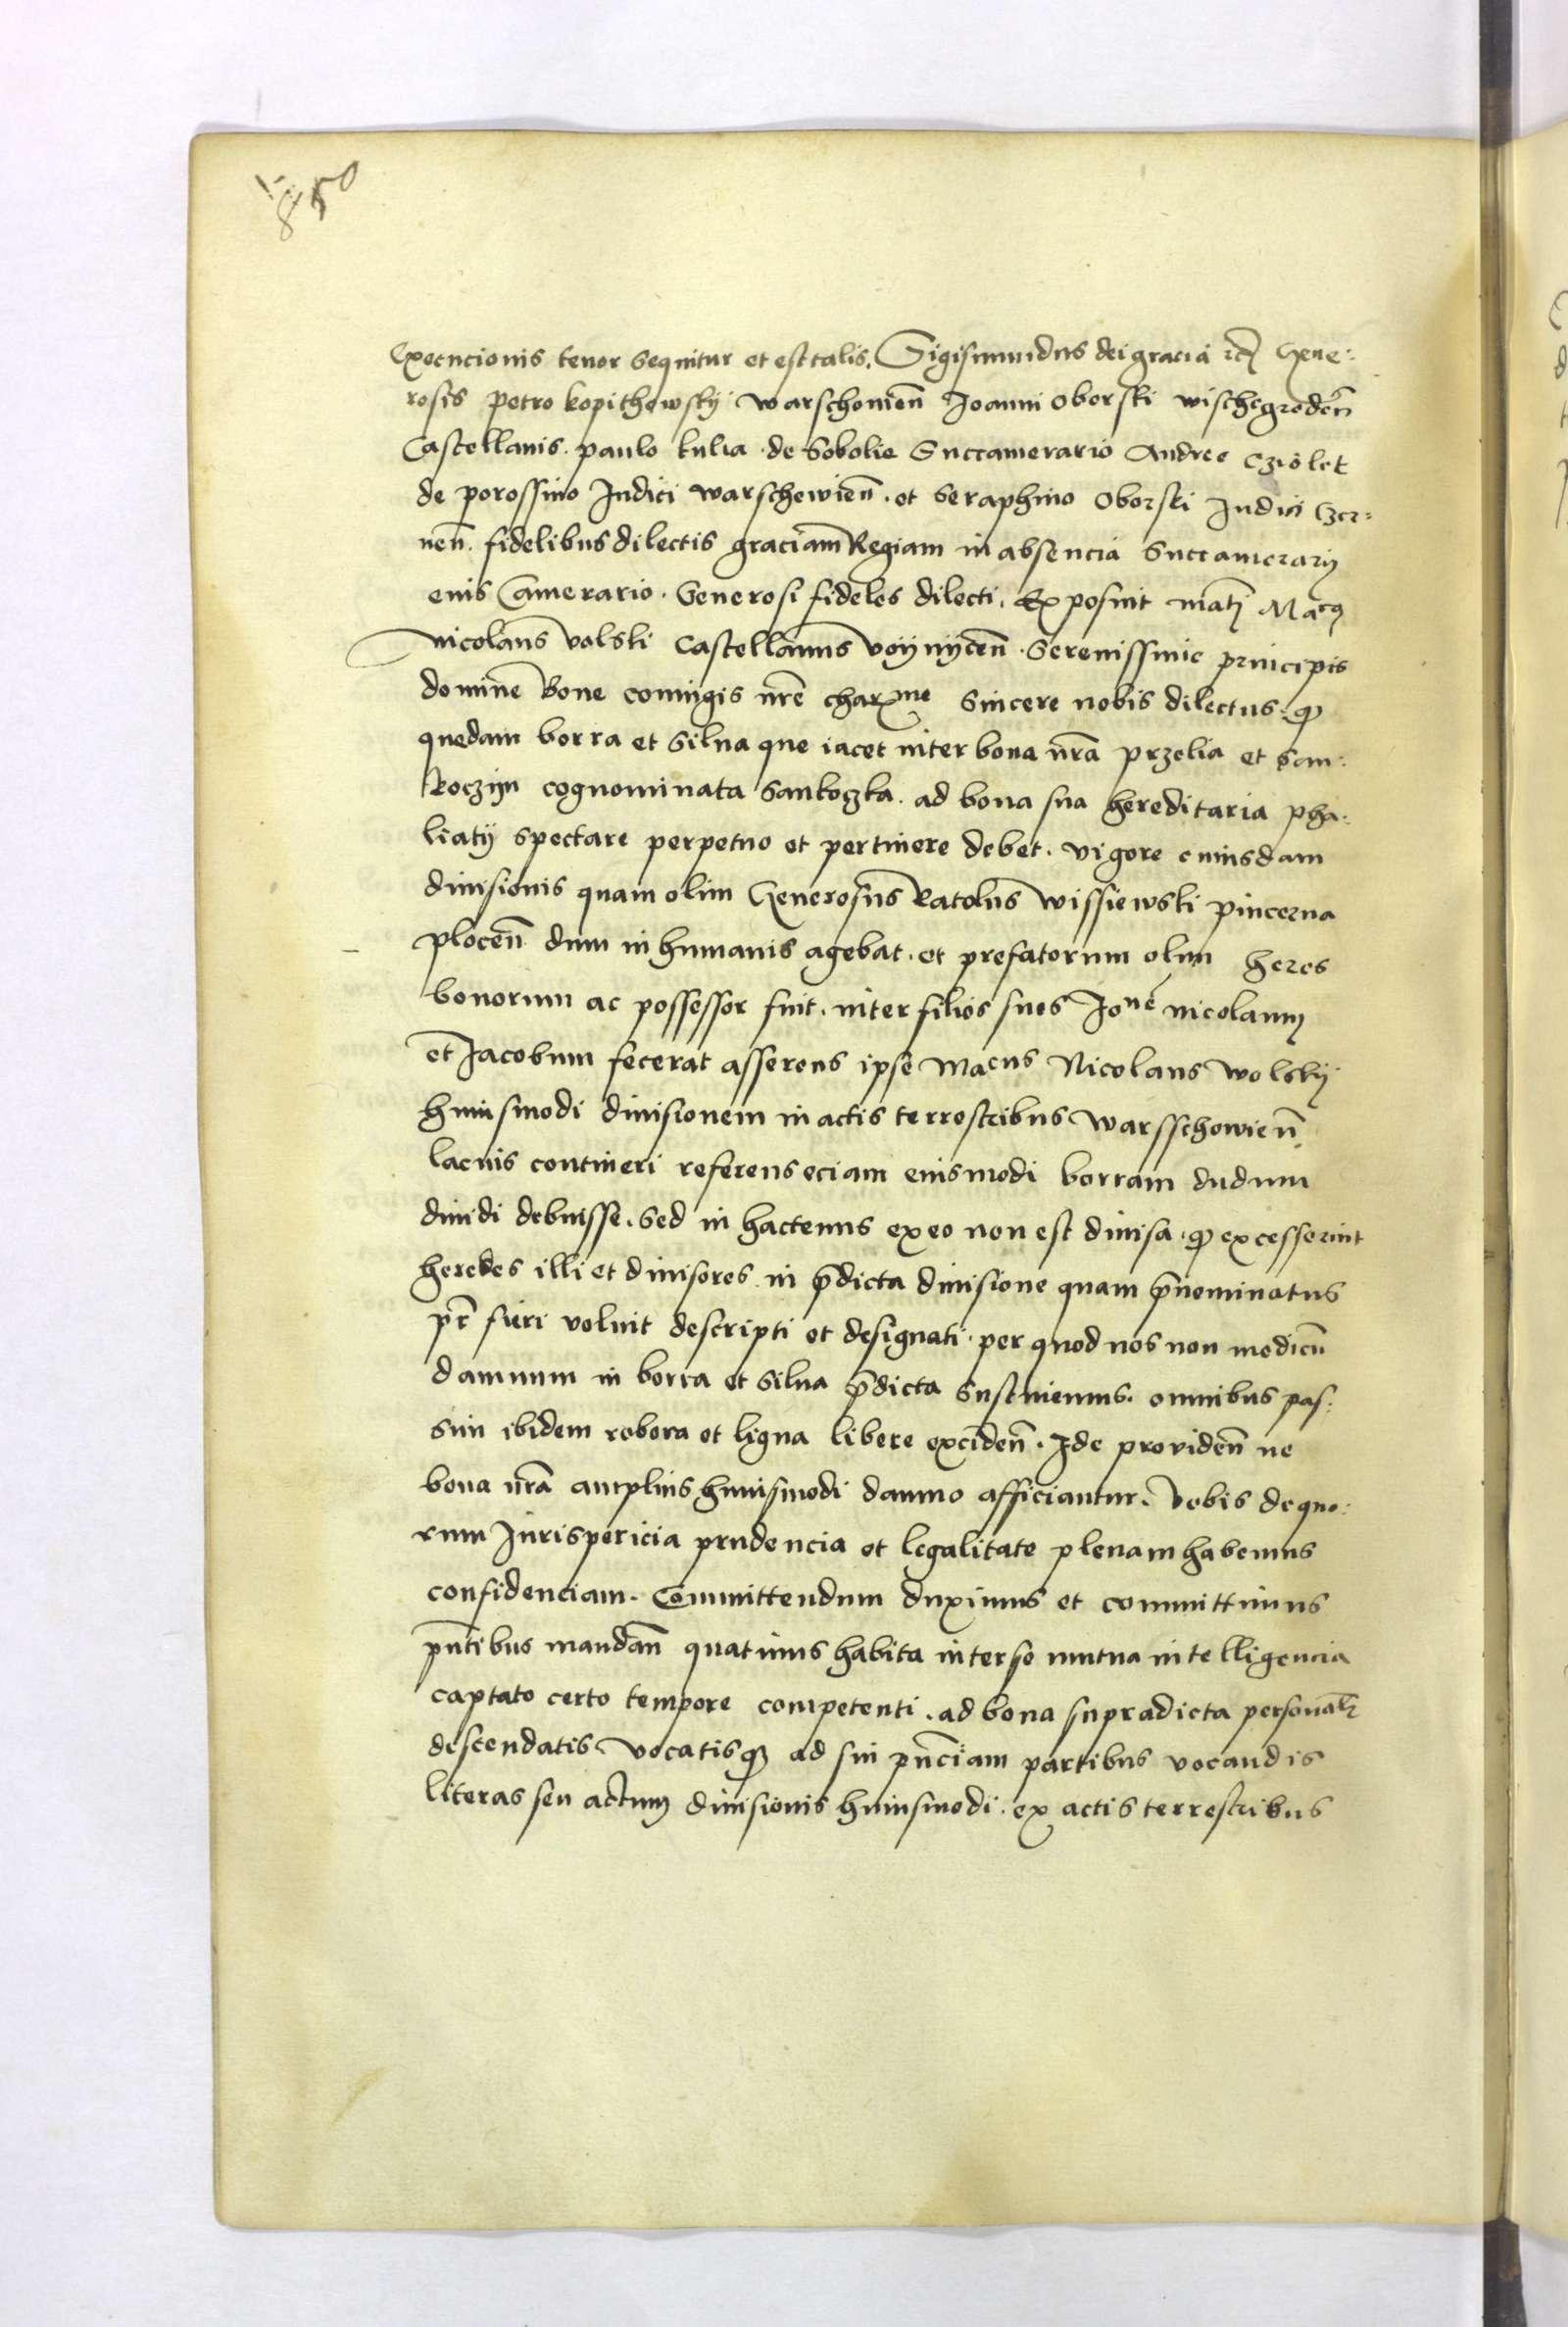 850
Execucionis tenor sequitur et est talis. Sigismundus dei gracia etc̄ Gene:
rosis petro kopithowsky warschouien̄ Joanni Oborski wischegroden̄
Castellanis. paulo kulia de Sobolie Succamerario Andree Cziolek
de porossino Judici warschewien̄. et Seraphino Oborski Judici Czer:
nen̄. fidelibus dilectis graciam Regiam in absencia Succamerarij
eius Camerario. Generosi fideles dilecti. Exposuit Maᶜᵍ
nicolaus volski Castellanus voynycen̄. Serenissime principis
domine Bone coniugis nr̄e charᵐᵉ sincere nobis dilectus. qꝫ
quedam borra et silua que iacet inter bona nr̄a przelia et San:
koczyn cognominata Sankoczka. ad bona sua hereditaria pha:
liaty spectare perpetuo et pertinere debet. vigore cuiusdam
diuisionis quam olim Generosus Ratolus wissiewski pincerna
plocen̄ dum in humanis agebat. et prefatorum olim heres
bonorum ac possessor fuit. inter filios suos Joⁿᵉ nicolaum
et Jacobum fecerat asserens ipse Maᶜᵘˢ Nicolaus wolsky
huiusmodi diuisionem in actis terrestribus warsschowien̄
lacius contineri referens eciam eiusmodi borram dudum
diuidi debuisse. Sed in hactenus ex eo non est diuisa. qꝫ excesserint
heredes illi et diuisores in p̄dicta diuisione quam p̄nominatus
pr̄ fieri voluit descripti et designati. per quod nos non modicū
damnum in borra et silua p̄dicta sustinemus. omnibus pas:
sim ibidem robora et ligna libere exciden̄. Ideo prouiden̄ ne
bona nr̄a amplius huiusmodi damno afficiantur. vobis de quo:
rum Jurispericia prudencia et legalitate plenam habemus
confidenciam. Committendum duximus et committimus
pn̄tibus mandan̄ quatinus habita inter se mutua intelligencia
captato certo tempore competenti. ad bona supradicta personalr̄
descendatis vocatisqꝫ ad sui pn̄ciam partibus vocandis
literas seu actum diuisionis huiusmodi. ex actis terrestribus